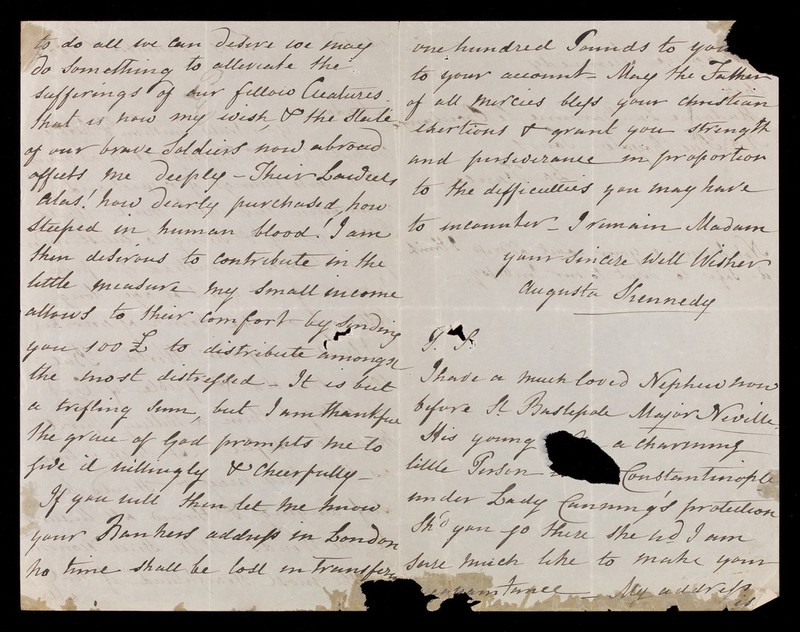 to do all we can desire we may
do something to alleviate the
sufferings of our fellow Creatures
that is now my wish, & the state
of our brave Soldiers now abroad
affects me deeply – Their Laurels
alas! how dearly purchased, how
steeped in human blood! I am
then desirous to contribute in the
little measure my small income
allows to their comfort by sending
you 100 £ to distribute amongst
the most distressed – It is but
a trifling sum, but I am thankful
the grace of God prompts me to
give it willingly & cheerfully –
If you will then let me know
your Bankers address in London
no time shall be lost in transfer
one hundred Pounds to you
to your account – May the Father
of all mercies bless your christian
exertions & grant you strength
and perseverance in proportion
to the difficulties you may have
to incounter – I remain Madam
your Sincere Well Wisher
Augusta
P. S.
I have a much loved Nephew now
before St Bastepole Major Neville,
His young a charming
little Person Constantinople
under Lady Canning's protection
Shd you go there she wd I am
sure much like to make your
– My address
is